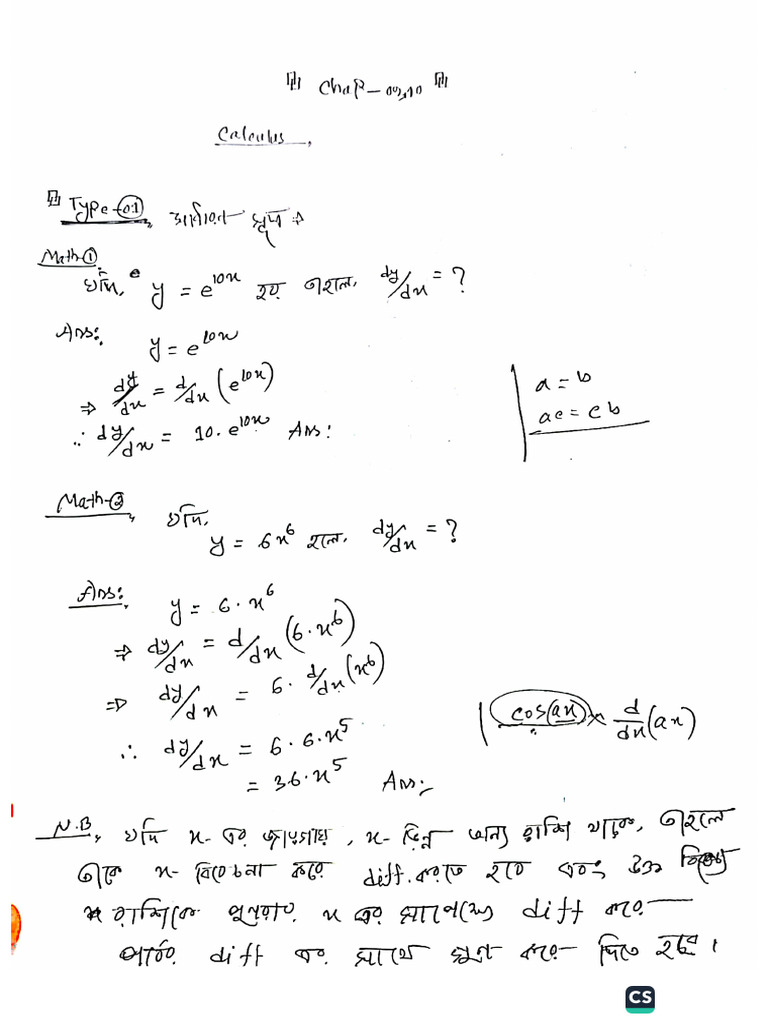 Chap-09,10
Calculus,
Type-01,
Math-①
যদি, e y = e^10x হয় তাহলে, dy/dx = ?
Ans:
y = e^10x
⇒ dy/dx = d/dx (e^10x)
∴ dy/dx = 10. e^10x Ans:
a = b
ae = eb
Math-②, যদি,
y = 6x^6 হলে, dy/dx = ?
Ans:
y = 6·x^6
⇒ dy/dx = d/dx (6·x^6)
⇒ dy/dx = 6· d/dx (x^6)
∴ dy/dx = 6·6·x^5
= 36·x^5 Ans:
cos(ax) × d/dx (ax)
N.B, যদি x-এর জায়গায়, x-ভিন্ন অন্য রাশি থাকে, তাহলে
তাকে x-বিবেচনা করে diff. করতে হবে এবং উক্ত
রাশিকে পুনরায় x এর সাপেক্ষে diff করে
diff এর সাথে গুণ করে দিতে হবে।
CS